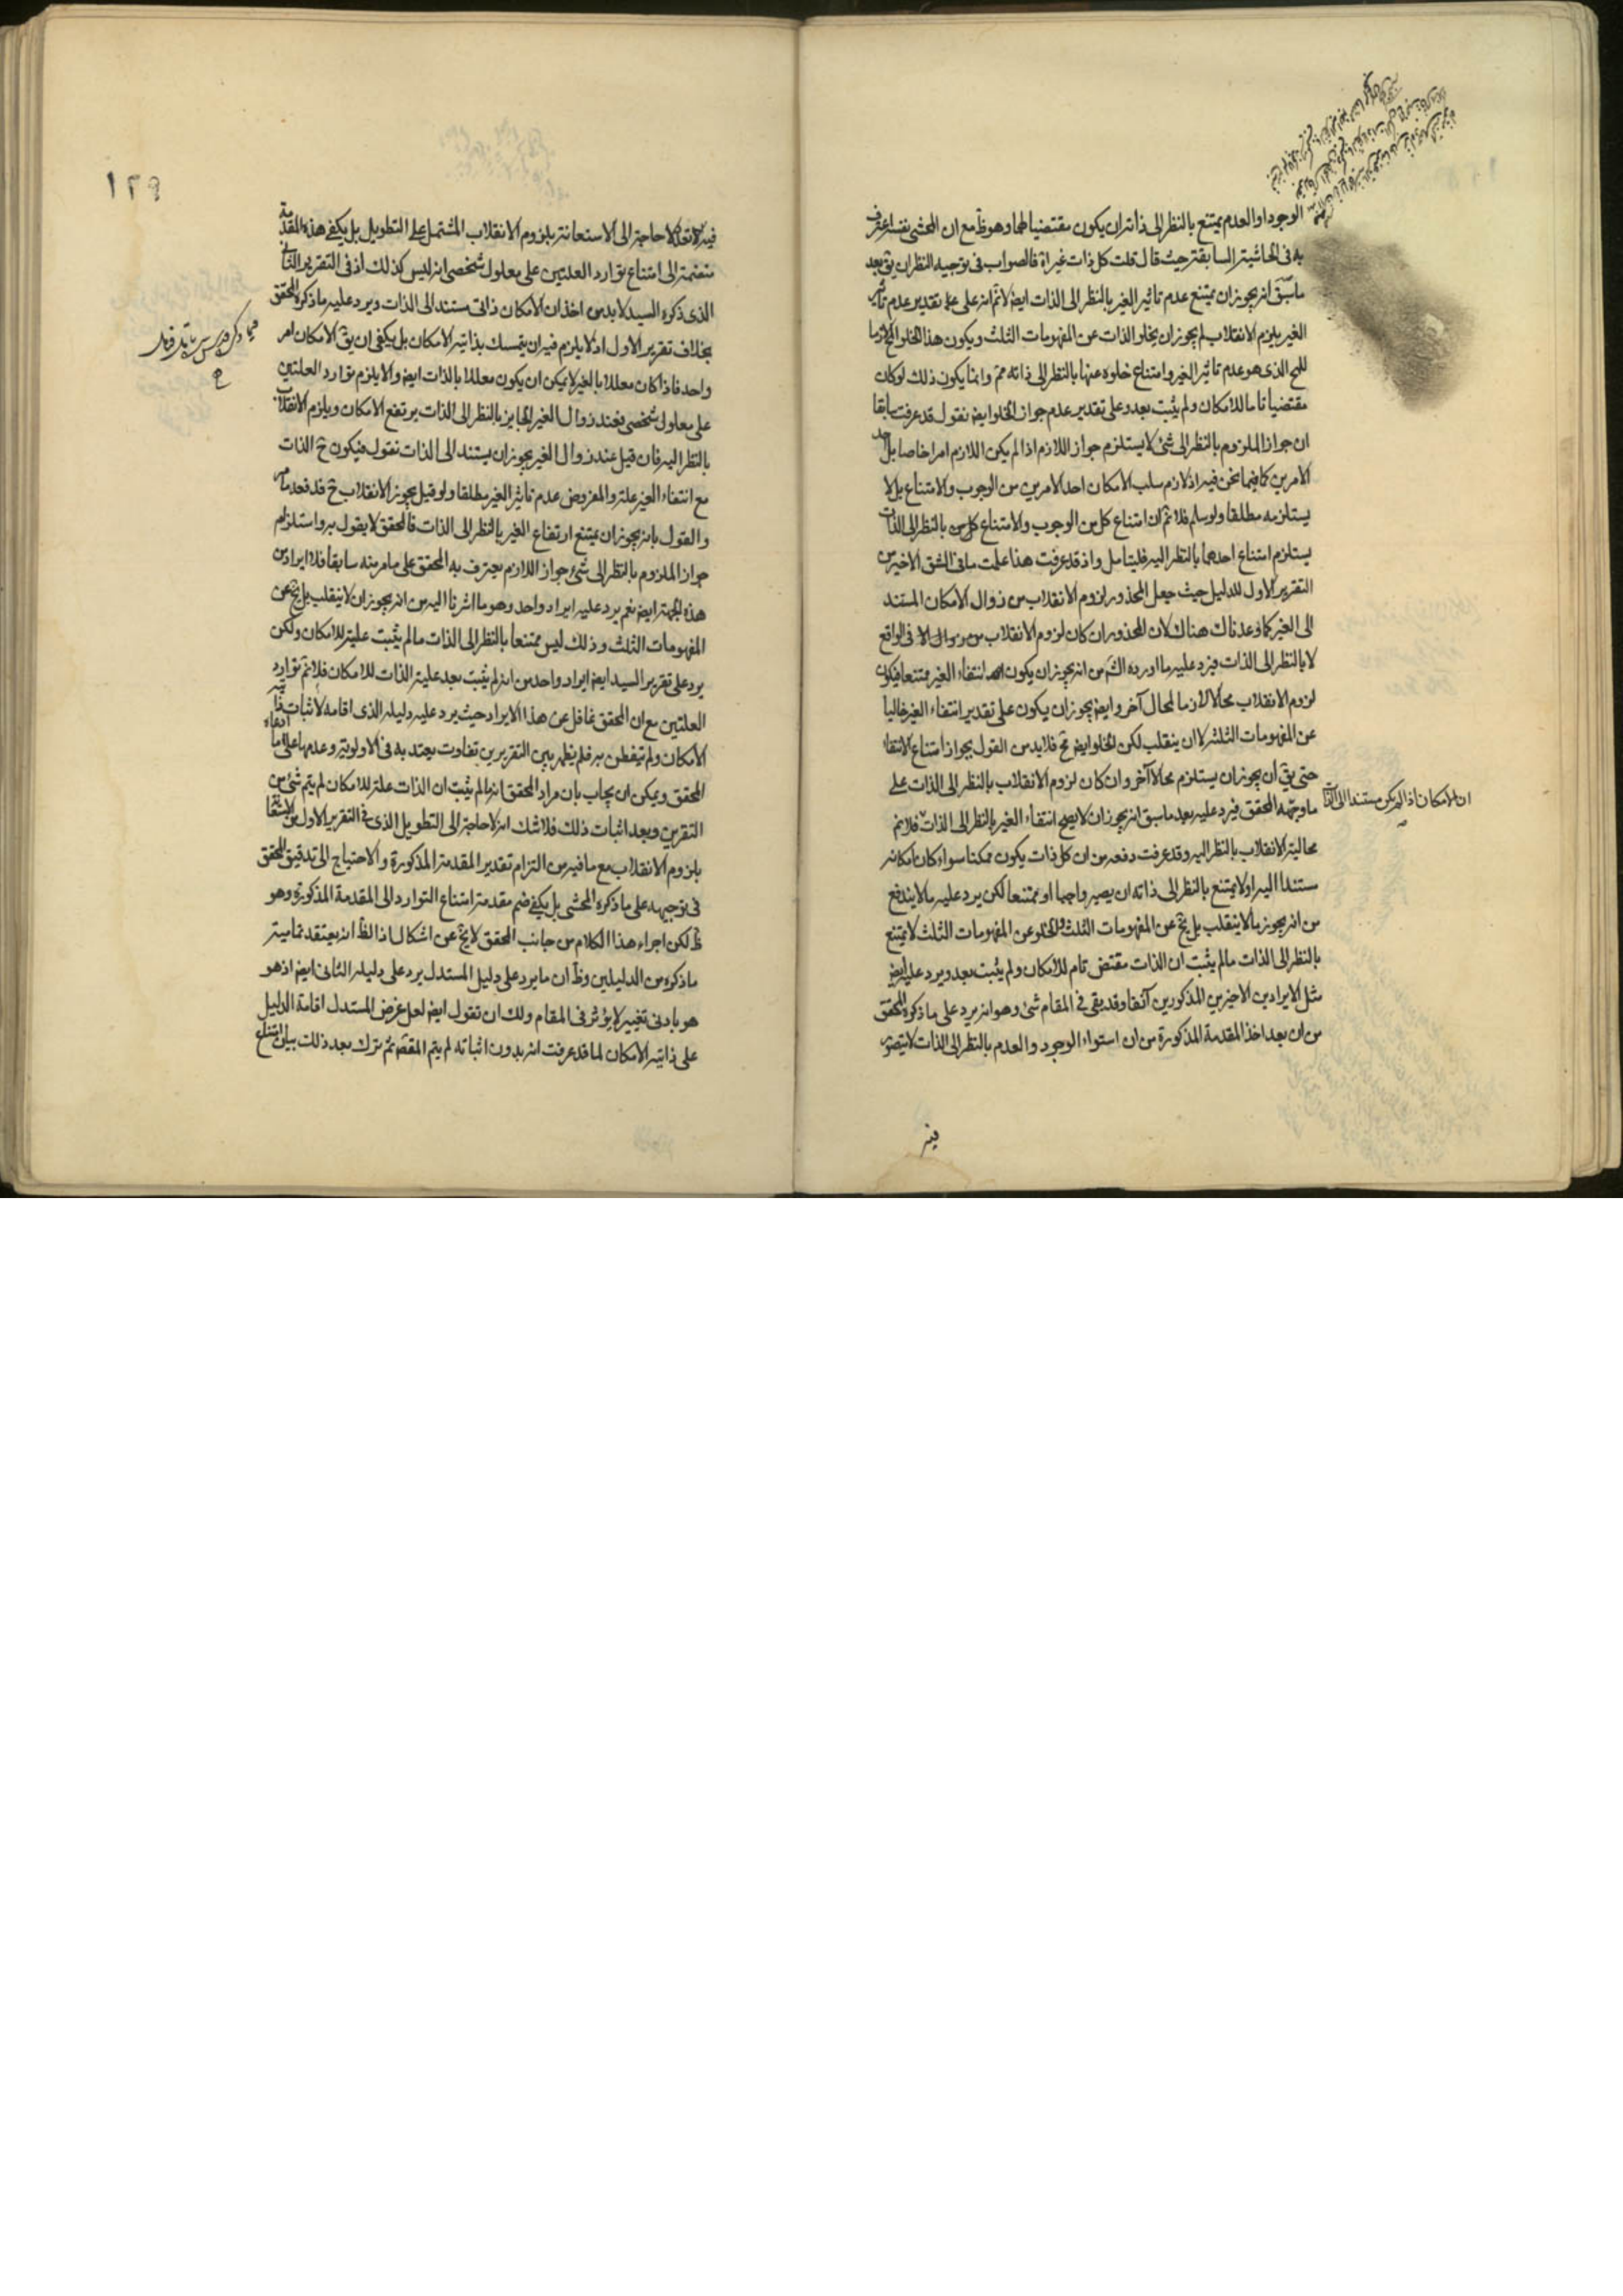 الوجود او العدم يمتنع بالنظر الى ذاته ان يكون مقتضيا لهما وهو ظ مع ان المحشى نفسه اعترف
به فى الحاشية السابقة حيث قال قلت كل ذات غيراة فالصواب فى توجيه النظر ان يق بعد
ما سبق انه يجوز ان يمتنع عدم تاثير الغير بالنظر الى الذات ايضا لا نم انه على تقدير عدم تاثير
الغير يلزم الانقلاب لم يجوز ان يخلو الذات عن المفهومات الثلث ويكون هذا الخلو لازما
للمح الذى هو عدم تاثير الغير وامتناع خلوه عنها بالنظر الى ذاته مم وانما يكون ذلك لو كان
مقتضيا تاما للامكان ولم يثبت بعد وعلى تقدير عدم جواز الخلو ايض نقول قد عرفت سابقا
ان جواز الملزوم بالنظر الى شئ لا يستلزم جواز اللازم اذا لم يكن اللازم امرا خاصا بل احد
الامرين كما فيما نحن فيه اذ لازم سلب الامكان احد الامرين من الوجوب والامتناع بل لا
يستلزمه مطلقا ولو سلم فلا نم ان امتناع كل من الوجوب والامتناع بالنظر الى الذات
يستلزم امتناع احدهما بالنظر اليه فليتامل واذ قد عرفت هذا علمت ما فى الشق الاخير من
التقرير الاول للدليل حيث جعل المحذور لزوم الانقلاب من زوال الامكان المستند
الى الغير كما وعدناك هناك لان المحذور ان كان لزوم الانقلاب فى الواقع
لا بالنظر الى الذات فيرد عليه ما اورده الش من انه يجوز ان يكون انتفاء الغير ممتنعا فيكون
لزوم الانقلاب محالا لازما لمحال آخر وايض يجوز ان يكون على تقدير انتفاء الغير خاليا
عن المفهومات الثلثة لا ان ينقلب لكن الخلو ايض مح فلا بد من القول بجواز امتناع الانتفاء
حتى يق ان يجوز ان يستلزم محالا آخر وان كان لزوم الانقلاب بالنظر الى الذات على
ما وجهه المحقق فيرد عليه بعد ما سبق انه يجوز ان لا يصح انتفاء الغير بالنظر الى الذات فلا نم
محالية الانقلاب بالنظر اليه وقد عرفت دفعه من ان كل ذات يكون ممكنا سواء كان امكانه
مستندا اليه او لا يمتنع بالنظر الى ذاته ان يصير واجبا او ممتنعا لكن يرد عليه ما لا يندفع
من انه يجوز ما لا ينقلب بل يخ عن المفهومات الثلث والخلو عن المفهومات الثلث لا يمتنع
بالنظر الى الذات ما لم يثبت ان الذات مقتض تام للامكان ولم يثبت بعد ويرد عليه ايض
مثل الايرادين الاخيرين المذكورين آنفا وقد بقى فى المقام شئ وهو انه يرد على ما ذكره المحقق
من ان بعد اخذ المقدمة المذكورة من ان استواء الوجود والعدم بالنظر الى الذات لا يتصور
ان الامكان اذا لم يكن مستندا الى الذات
فيه
١٢٩
فيه الانفكاك لا حاجة الى الاستعانة بلزوم الانقلاب المشتمل على التطويل بل يكفى هذه المقدمة
منضمة الى امتناع توارد العلتين على معلول شخصى انه ليس كذلك اذ فى التقرير الثانى
الذى ذكره السيد لا بد من اخذ ان الامكان ذاتى مستند الى الذات ويرد عليه ما ذكره المحقق
بخلاف تقرير الاول اذ لا يلزم فيه ان يتمسك بذاتية الامكان بل يكفى ان يق الامكان امر
واحد فاذا كان معللا بالغير لا يمكن ان يكون معللا بالذات ايض والا يلزم توارد العلتين
على معلول شخصى فعند زوال الغير الجايز بالنظر الى الذات يرتفع الامكان ويلزم الانقلاب
بالنظر اليه فان قيل عند زوال الغير يجوز ان يستند الى الذات نقول فيكون ح الذات
مع انتفاء الغير علة والمفروض عدم تاثير الغير مطلقا ولو قيل بجوز الانقلاب ح فقد مر
والقول بانه يجوز ان يمتنع ارتفاع الغير بالنظر الى الذات فالمحقق لا يقول به واستلزام
جواز الملزوم بالنظر الى شئ جواز اللازم يعترف به المحقق على ما مر منه سابقا فلا ايراد من
هذه الجهة ايض نعم يرد عليه ايراد واحد وهو ما اشرنا اليه من انه يجوز ان لا ينقلب بل يخ عن
المفهومات الثلث وذلك ليس ممتنعا بالنظر الى الذات ما لم يثبت علية للامكان ولكن
يرد على تقرير السيد ايض ايراد واحد من انه لم يثبت بعد علية الذات للامكان فلا نم توارد
العلتين مع ان المحقق غافل عن هذا الايراد حيث يرد عليه دليله الذى اقامه لاثبات ذاتية
الامكان ولم يتفطن به فلم يظهر بين التقريرين تفاوت يعتد به فى الاولوية وعدمها على ما افاده
المحقق ويمكن ان يجاب بان مراد المحقق انه ما لم يثبت ان الذات علة للامكان لم يتم شئ من
التقرين وبعد اثبات ذلك فلا شك انه لا حاجة الى التطويل الذى فى التقرير الاول من الاستعانة
بلزوم الانقلاب مع ما فيه من التزام تقدير المقدمة المذكورة والاحتياج الى تدقيق المحقق
فى توجيهه على ما ذكره المحشى بل يكفى ضم مقدمة امتناع التوارد الى المقدمة المذكورة وهو
ظ لكن اجراء هذا الكلام من جانب المحقق لا يخ عن اشكال اذ الظ انه يعتقد تمامية
ما ذكره من الدليلين وظ ان ما يرد على دليل المستدل يرد على دليله الثانى ايض اذ هو
هو بادنى تغيير لا يؤثر فى المقام ولك ان تقول ايض لعل غرض المستدل اقامة الدليل
على ذاتية الامكان لما قد عرفت انه بدون اثباته لم يتم المقص ثم ترك بعد ذلك بيان امتناع